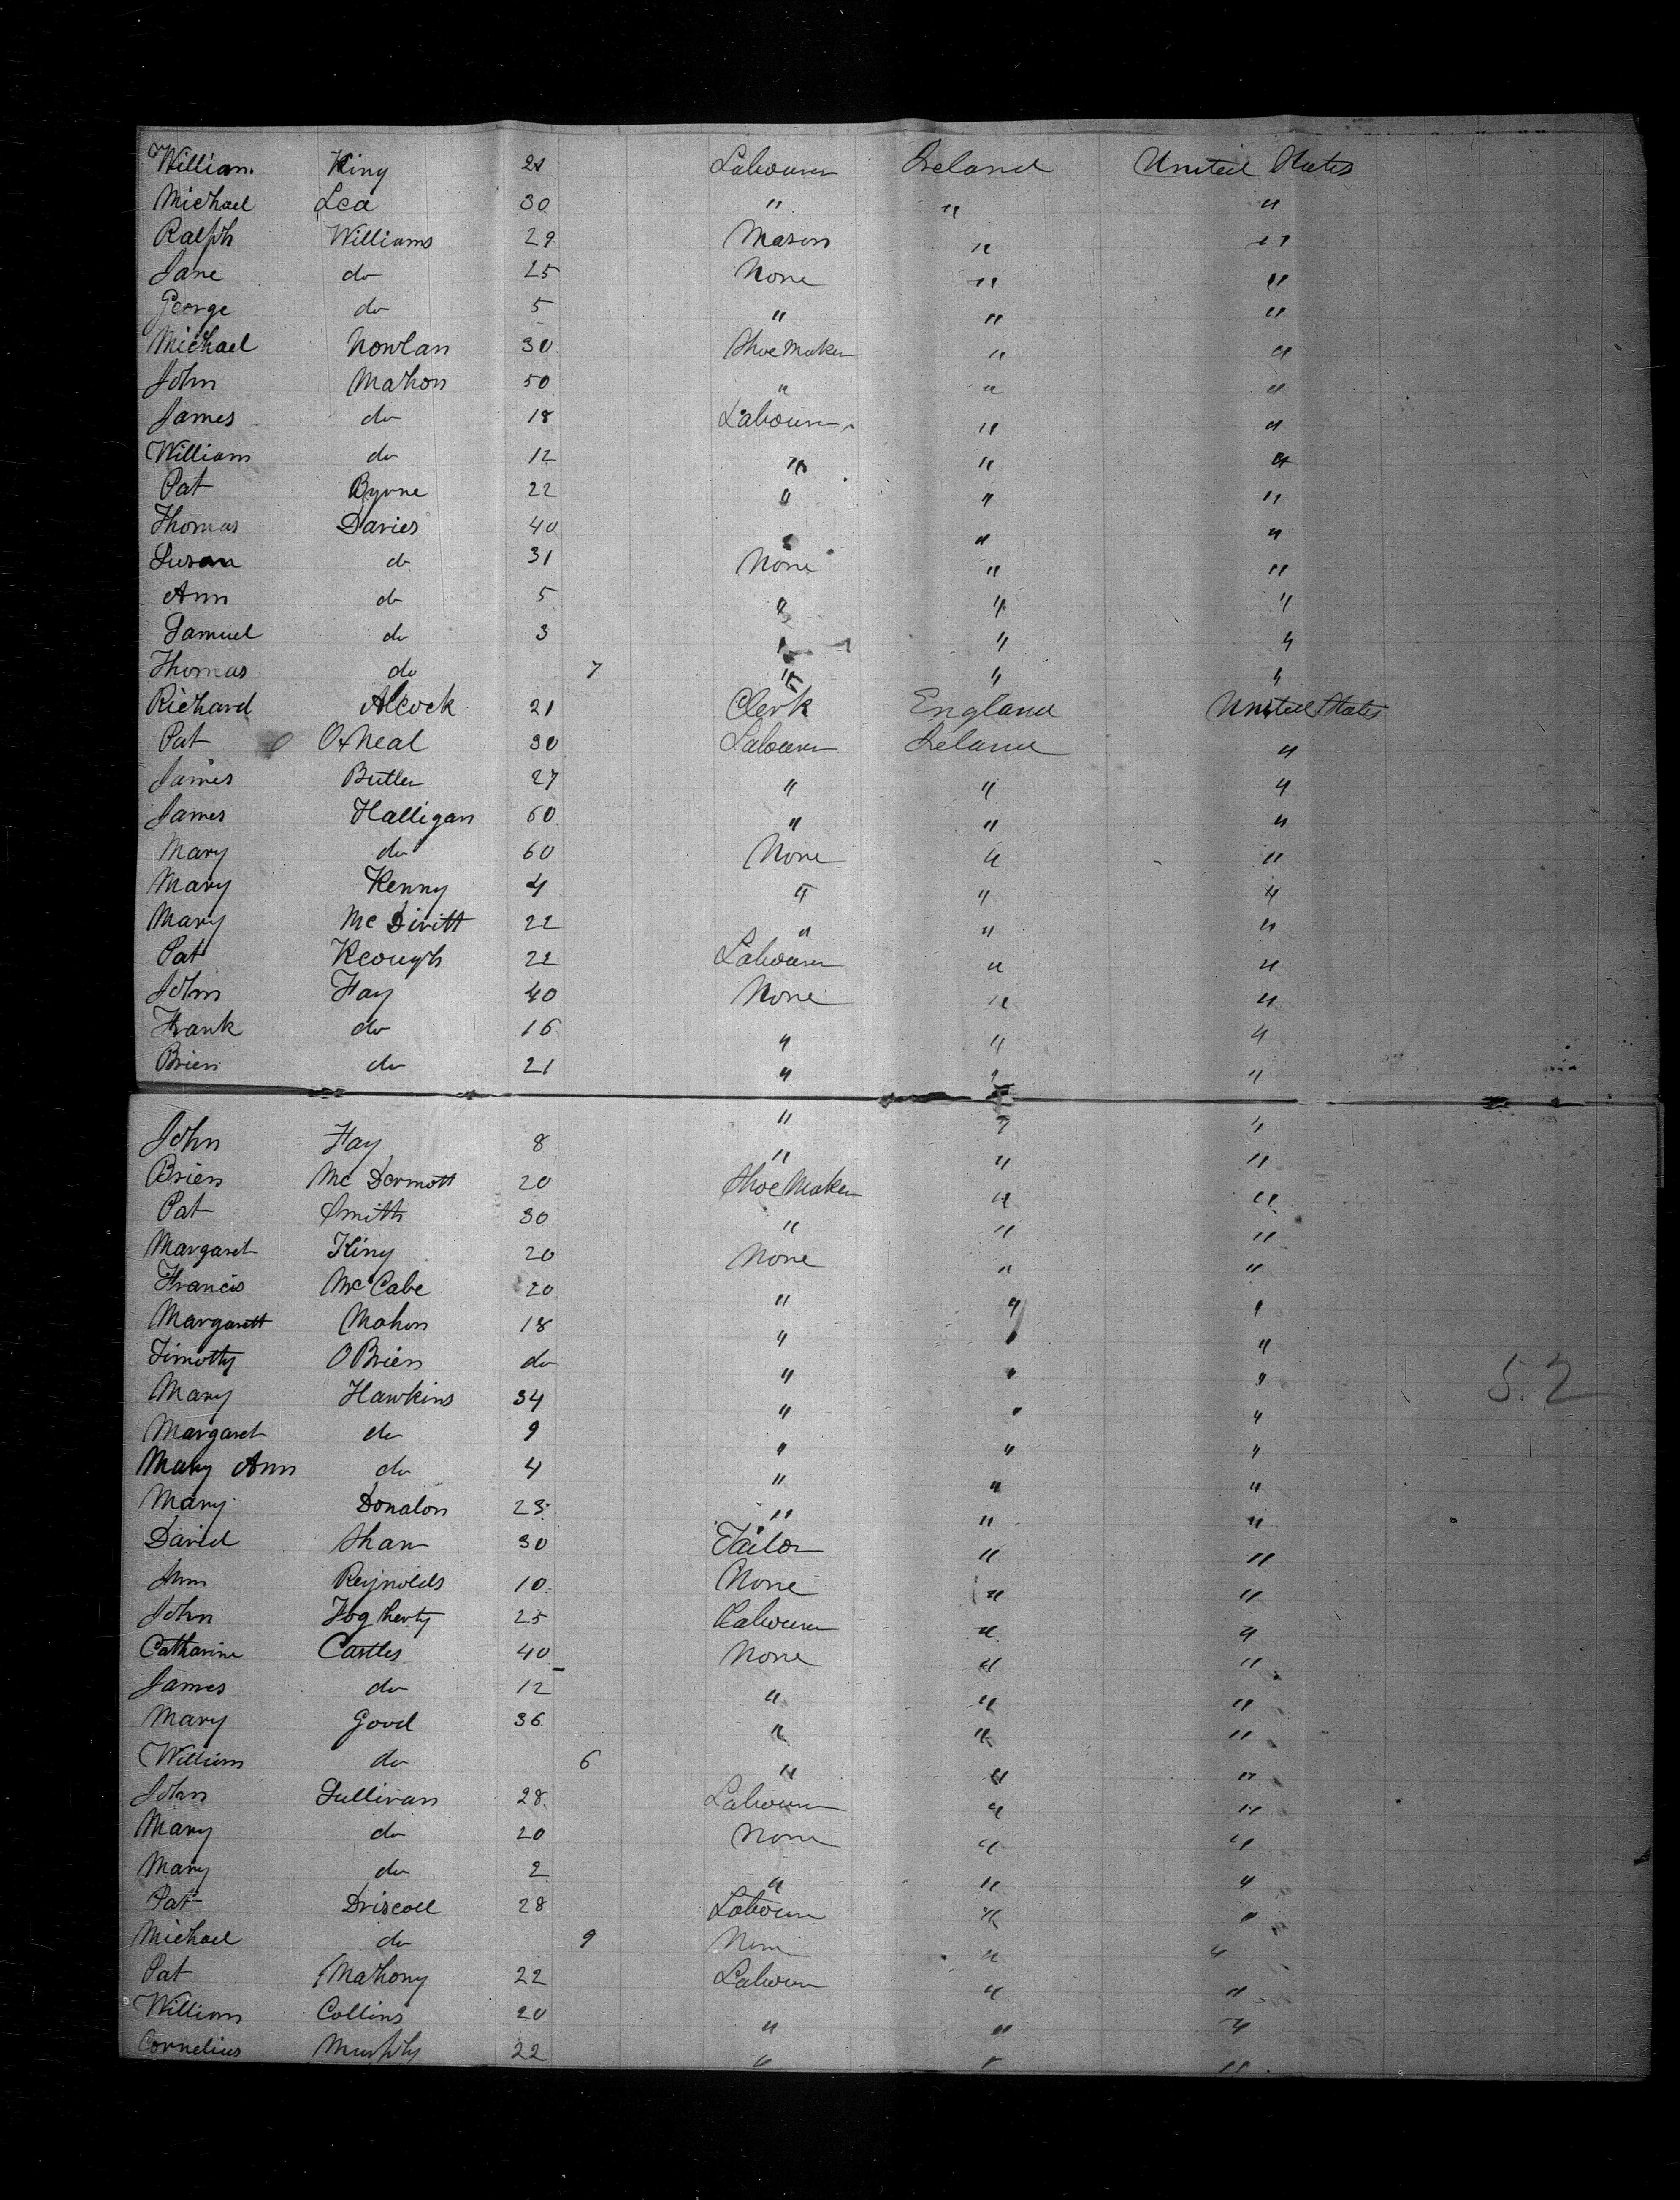 William King 21 Labourer Ireland United States
Michael Lea 30 " " "
Ralph Williams 29 Mason " "
Jane do 25 None " "
George do 5 " " "
Michael Nowlan 30 Shoe Maker " "
John Mahon 50 " " "
James do 18 Labourer " "
William do 12 " " "
Pat Byrne 22 " " "
Thomas Davies 40 " " "
Susan do 31 None " "
Ann do 5 " " "
Samuel do 3 " " "
Thomas do 7 " " "
Richard Alcock 21 Clerk England United States
Pat O'Neal 30 Labourer Ireland "
James Butler 27 " " "
James Halligan 60 " " "
Mary do 60 None " "
Mary Kenny 4 " " "
Mary Mc Divitt 22 " " "
Pat Keough 22 Labourer " "
John Fay 40 None " "
Frank do 16 " " "
Brien do 21 " " "
" " "
John Fay 8 " " "
Brien Mc Dermott 20 Shoe Maker " "
Pat Smith 30 " " "
Margaret King 20 None " "
Francis McCabe 20 " " "
Margarett Mahon 18 " " "
Timothy OBrien do " " "
Mary Hawkins 34 " " "
Margaret do 9 " " "
Mary Ann do 4 " " "
Mary Donalon 23 " " "
David Shaw 30 Tailor " "
Ann Reynolds 10 None " "
John Fogherty 25 Labourer " "
Catharine Castles 40 None " "
James do 12 " " "
Mary Good 36 " " "
William do 6 " " "
John Sullivan 28 Labourer " "
Mary do 20 None " "
Mary do 2 " " "
Pat Driscoll 28 Labourer " "
Michael do 9 None " "
Pat Mahony 22 Labourer " "
William Collins 20 " " "
Cornelius Murphy 22 " " "
52